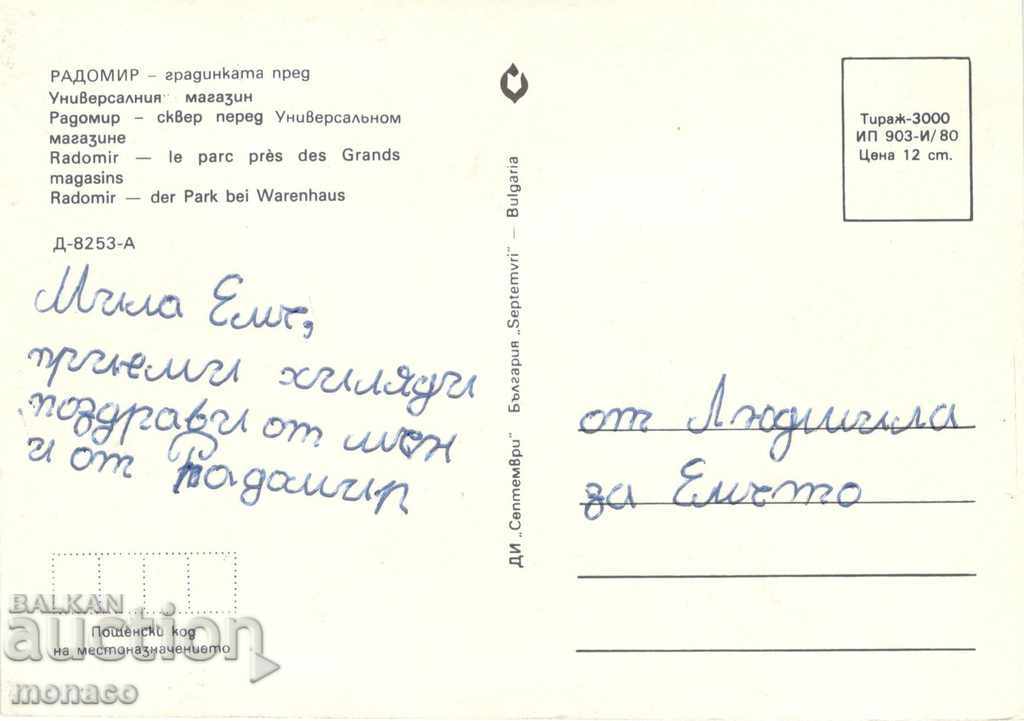 РАДОМИР – градинката пред
Универсалния магазин
Радомир – сквер перед Универсальном
магазине
Radomir — le parc près des Grands
magasins
Radomir — der Park bei Warenhaus
Д-8253-А
Мила Еми,
приеми хиляди
поздрави от мен
и от Радомир
Пощенски код
на местоназначението
ДИ „Септември" България „Septemvri" — Bulgaria
Тираж-3000
ИП 903-И/80
Цена 12 ст.
от Людмила
за Емито
BALKAN
auction
monaco